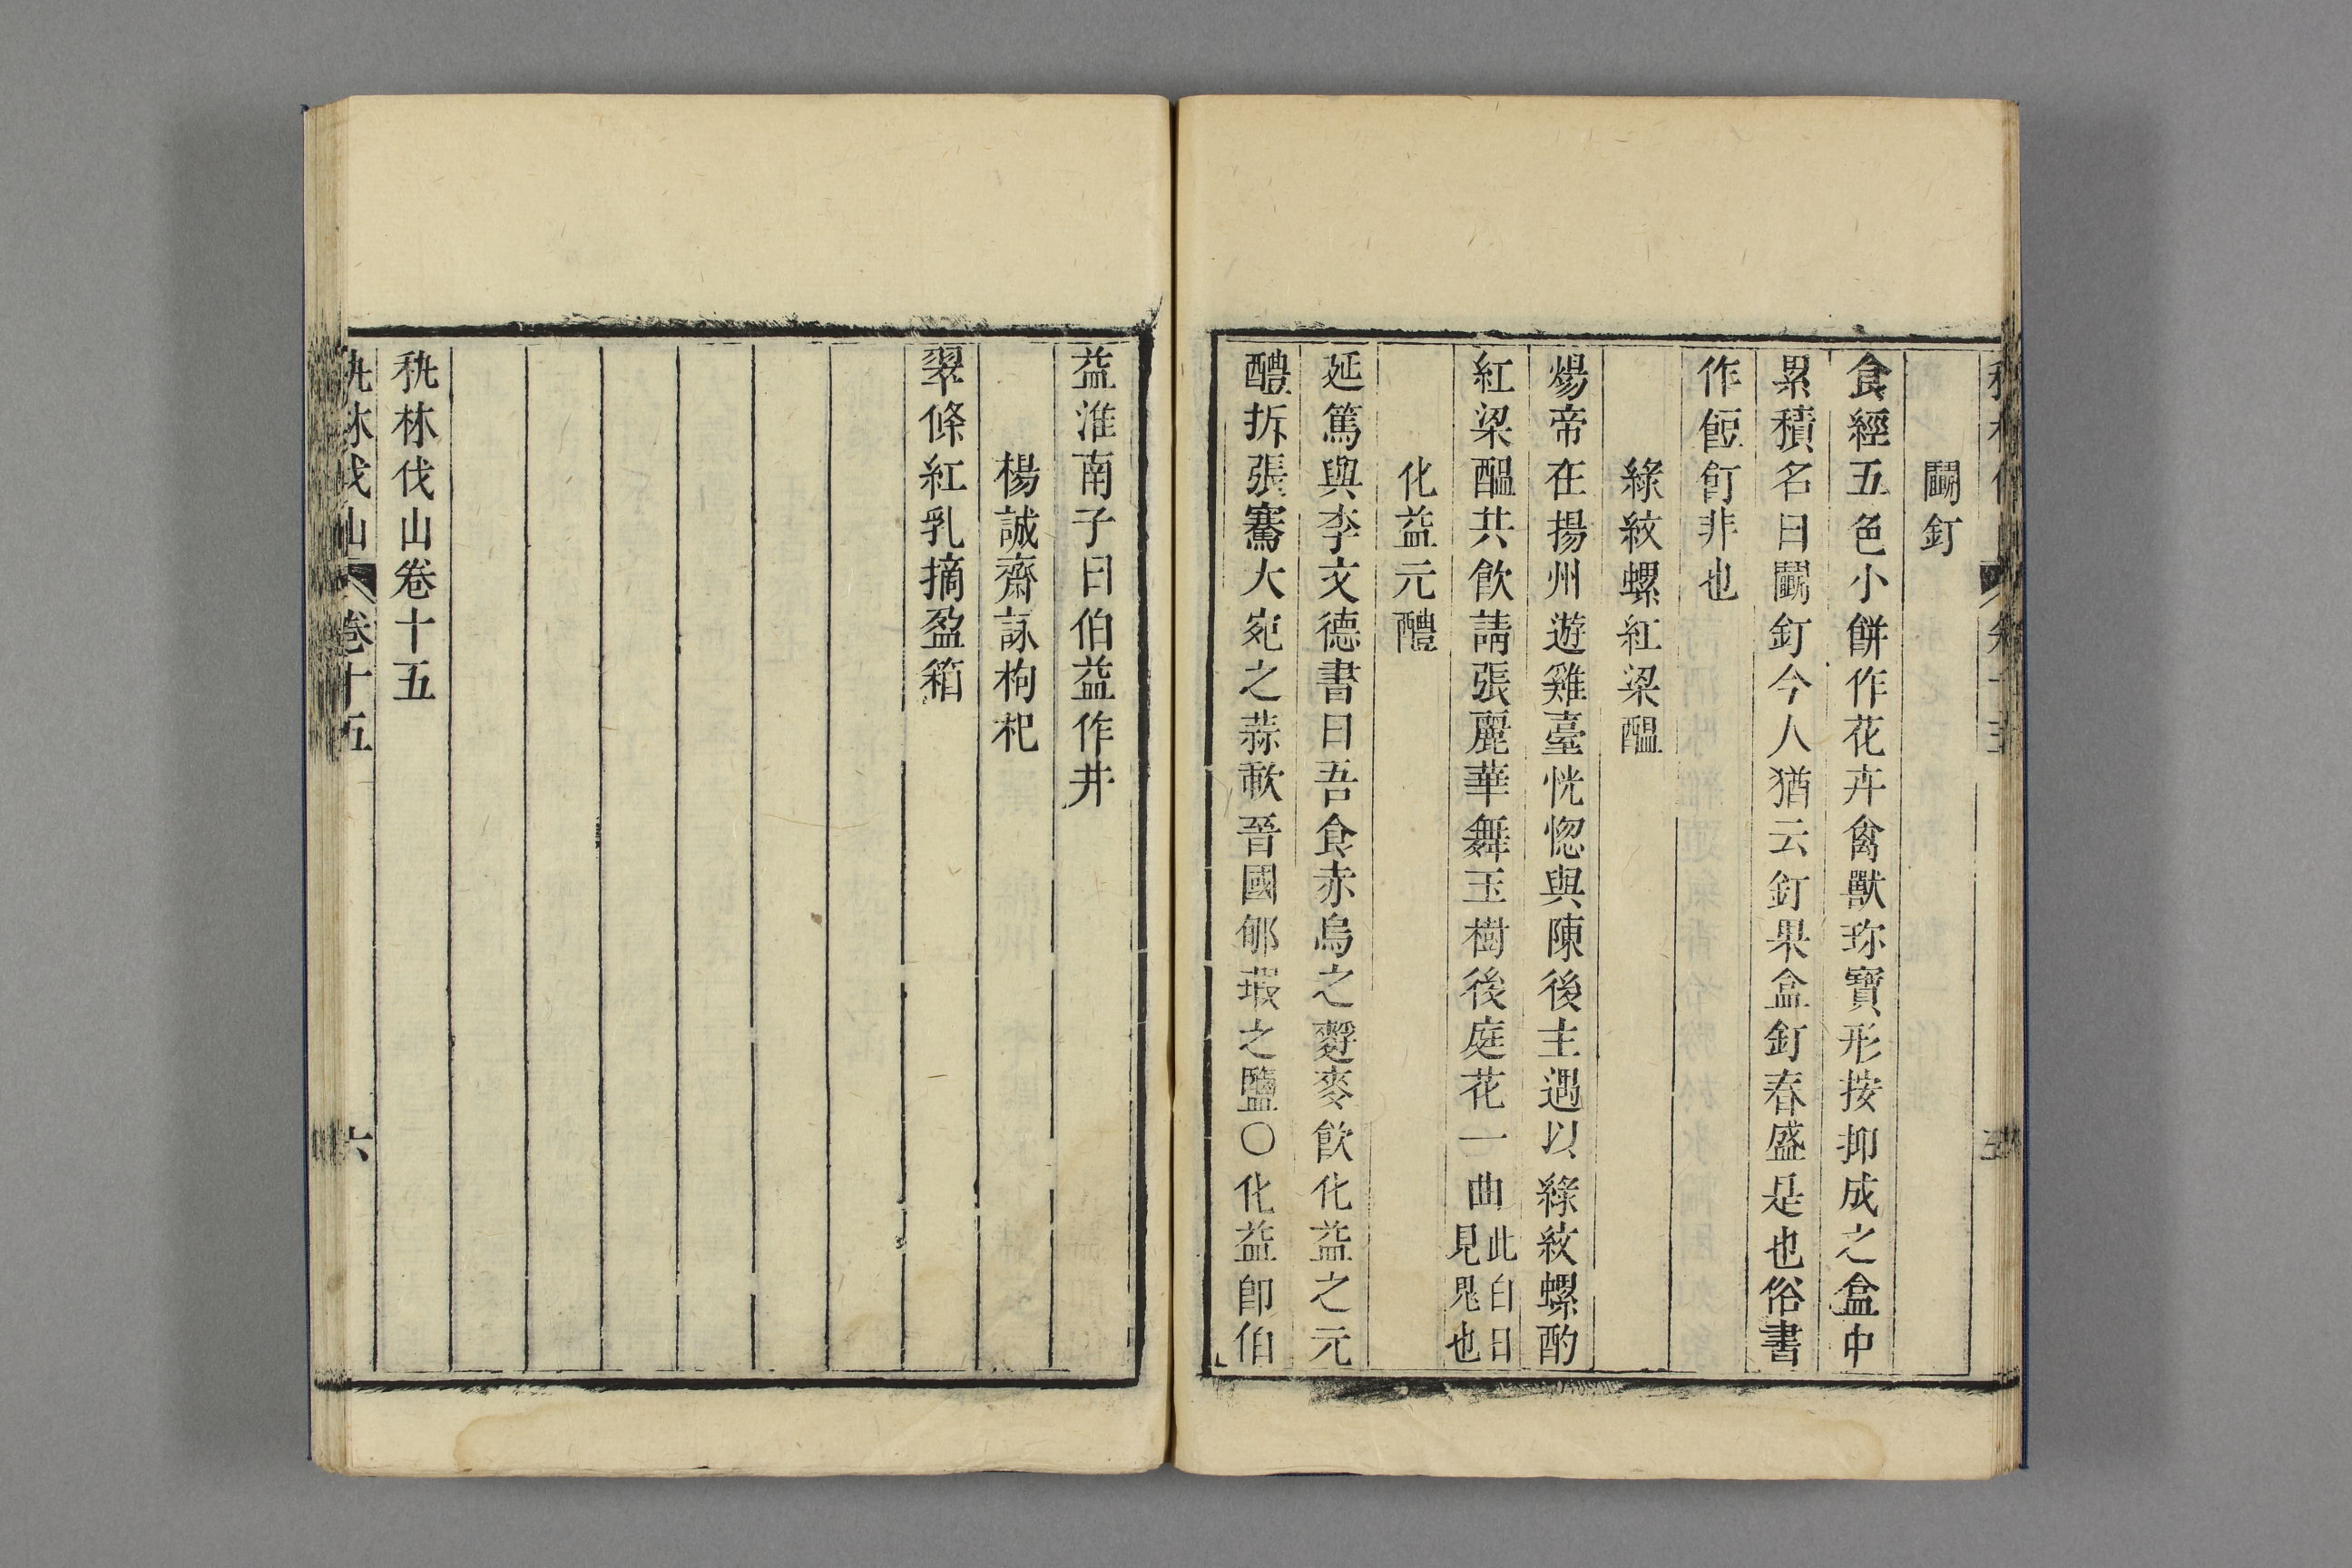 鬭釘
食經五色小餅作花卉禽獸珎寶形按抑成之盒中
累積名曰鬭釘今人猶云釘果盒釘春盛是也俗書
作飣餖非也
綠紋螺紅梁醖
煬帝在揚州遊雞臺恍惚與陳後主遇以綠紋螺酌
紅梁醖共飲請張麗華舞玉樹後庭花一曲此白日
見鬼也
化益元醴
延篤與李文德書曰吾食赤烏之麰麥飲化益之元
醴拆張騫大宛之蒜歃晉國郇瑕之鹽○化益卽伯
益淮南子曰伯益作井
楊誠齋詠枸杞
翠條紅乳摘盈箱
秇林伐山卷十五
秇林伐山 卷十五 六